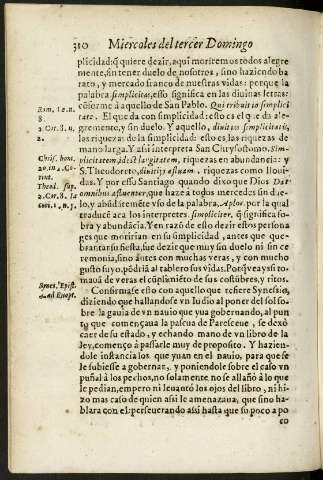 310 Miercoles del tercer Domingo
plicidad: q̃ quiere dezir, aqui morirémos todos alegre
mente, sin tener duelo de nosotros, sino haziendo ba
rato, y mercado franco de nuestras vidas: porque la
palabra simplicitas, esso significa en las diuinas letras:
cõforme à aquello de San Pablo. Qui tribuit in simplici
tate. El que da con simplicidad: esto es el que da ale-
gremente, y sin duelo. Y aquello, diuitias simplicitatis,
las riquezas de la simplicidad: esso es las riquezas de
mano larga. Y assi interpreta San Chrysostomo. Sim-
plicitatem, id est largitatem, riquezas en abundancia: y
S. Theodoreto, riquezas como lloui-
das. Y por esso Santiago quando dixo que Dios Dat
omnibus affluenter, que haze à todos mercedes sin due-
lo, y abũdãtemẽte vso de la palabra. Aplos. por la qual
traducẽ acá los interpretes. simpliciter, q̃ significa so-
bra y abundãcia. Y en razõ de esto dezir estos persona
ges que moririan en su simplicidad, antes que que-
brantar su fiesta, fue dezir que muy sin duelo ni sin ce
remonia, sino ántes con muchas veras, y con mucho
gusto suyo, põdriã al tablero sus vidas. Porq̃ vea y si to-
mauã de veras el cũplimiẽto de sus costũbres, y ritos.
Confirmase esto con aquello que refiere Synesio,
diziendo que hallandose vn Iudio al poner del sol so-
bre la gauia de vn nauio que yua gobernando, al pun
to que començaua la pascua de Parasceue, se dexó
caer de su estado, y echando mano de vn libro de la
ley, començò à passarle muy de proposito. Y hazien-
dole instancia los que yuan en el nauio, para que se
le subiesse a gobernar, y poniendole sobre el caso vn
puñal à los pechos, no solamente no se allañò à lo que
le pedian, empero ni leuantò los ojos del libro, ni hi-
zo mas caso de quien assi le amenazaua, que sino ha-
blara con el: perseuerando assi hasta que su poco a po
co
Rom. 12. n.
8.
2. Cor. 8. n.
2.
Chris. hom.
20. in 2. Co-
rint.
Theod. sup.
2. Cor. 8. Ia
cobi. 1. n. 5.
Synes. Epist.
4. ad Euopt.